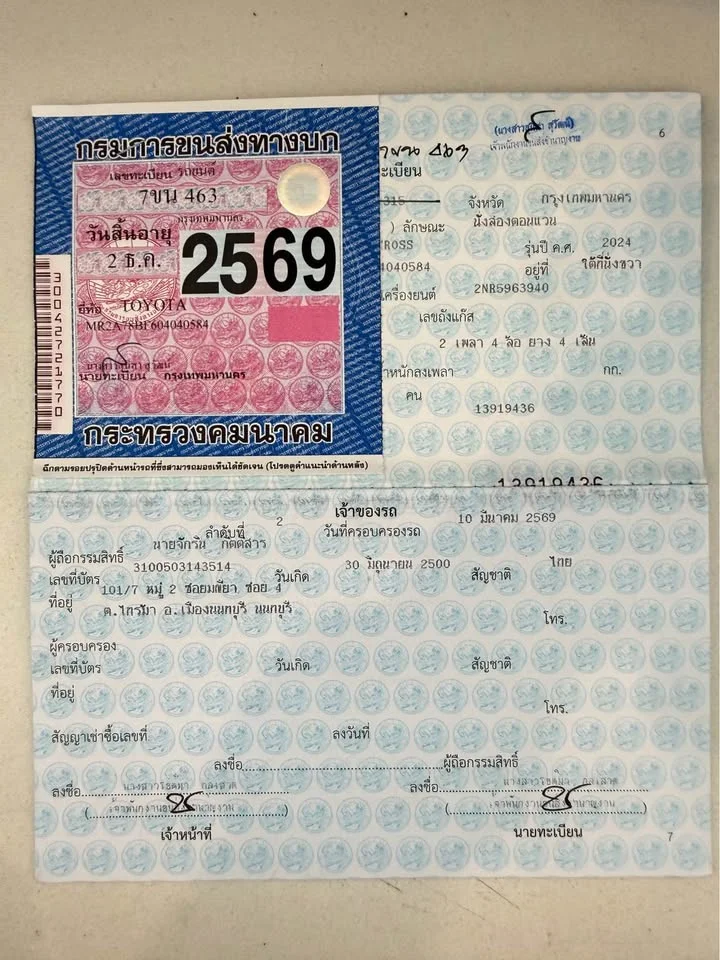 กรมการขนส่งทางบก
เลขทะเบียน รถยนต์
7ขน 463
กรุงเทพมหานคร
วันสิ้นอายุ
2 ธ.ค.
2569
ยี่ห้อ TOYOTA
MR2A78BF604040584
นายทะเบียน กรุงเทพมหานคร
30042721770
กระทรวงคมนาคม
ฉีกตามรอยปรุปิดด้านหน้ารถที่ซึ่งสามารถมองเห็นได้ชัดเจน (โปรดดูคำแนะนำด้านหลัง)
6
ะเบียน
315 จังหวัด กรุงเทพมหานคร
) ลักษณะ นั่งสองตอนแวน
ROSS รุ่นปี ค.ศ. 2024
4040584 อยู่ที่ ใต้ที่นั่งขวา
เครื่องยนต์ 2NR5963940
เลขถังแก๊ส
2 เพลา 4 ล้อ ยาง 4 เส้น
้ำหนักลงเพลา กก.
คน
13919436
13919436
เจ้าของรถ
ลำดับที่ 2 วันที่ครอบครองรถ 10 มีนาคม 2569
ผู้ถือกรรมสิทธิ์ นายจักริน กิตติสาร
เลขที่บัตร 3100503143514 วันเกิด 30 มิถุนายน 2500 สัญชาติ ไทย
ที่อยู่ 101/7 หมู่ 2 ซอย ซอย 4
ต.ไทรม้า อ.เมืองนนทบุรี นนทบุรี
โทร.
ผู้ครอบครอง
เลขที่บัตร วันเกิด สัญชาติ
ที่อยู่
โทร.
สัญญาเช่าซื้อเลขที่ ลงวันที่
ลงชื่อ ผู้ถือกรรมสิทธิ์
ลงชื่อ ลงชื่อ
เจ้าหน้าที่ นายทะเบียน
7